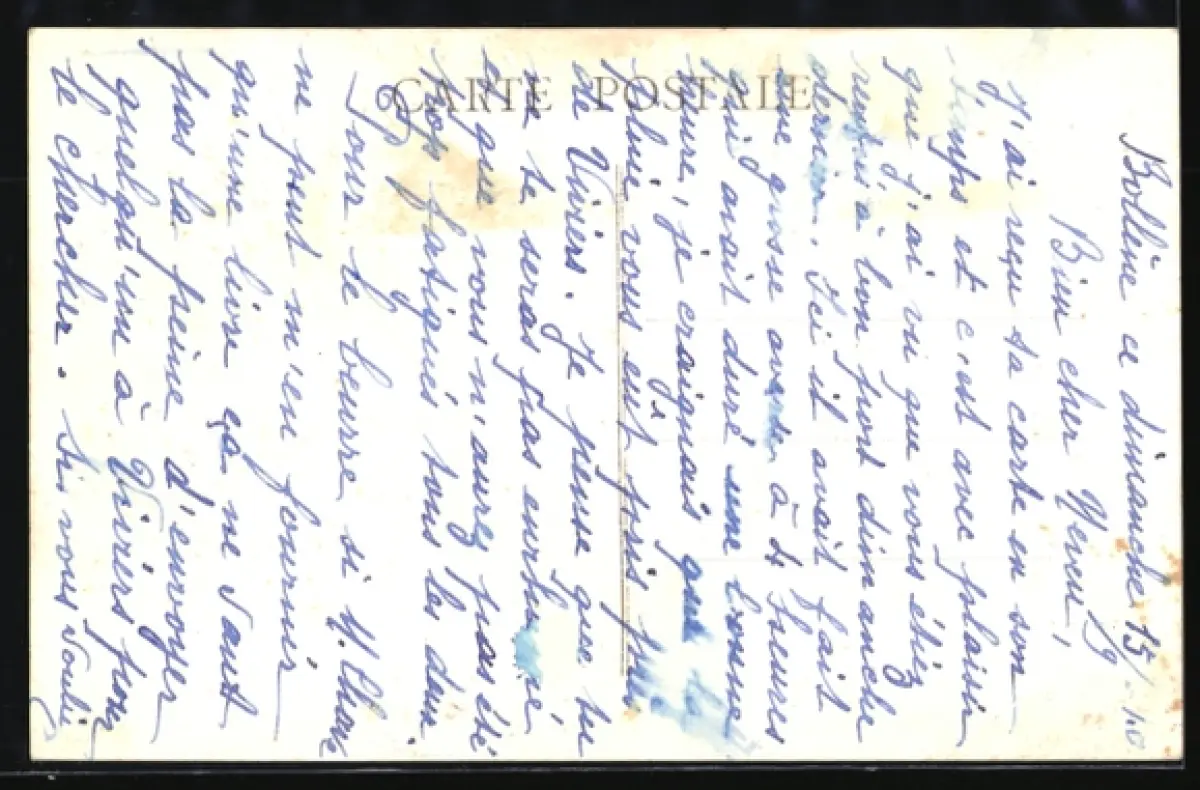 CARTE POSTALE
Bollène ce dimanche 15/
Bien cher Neveu,
J'ai reçu ta carte en son
temps et c'est avec plaisir
que j'ai vu que vous étiez
rendus à bon port dimanche
dernier. Ici il avait fait
une grosse averse à 4 heures
qui avait duré une bonne
heure, je craignais que la
pluie vous eut pris près
de Viviers. Je pense que tu
ne te seras pas enrhumé
et que vous n'aurez pas été
trop fatigués tous les deux
Pour le beurre si M. 
ne peut m'en fournir
qu'une livre ça ne vaut
pas la peine d'envoyer
quelqu'un à Viviers pour
le chercher. Si vous voulie